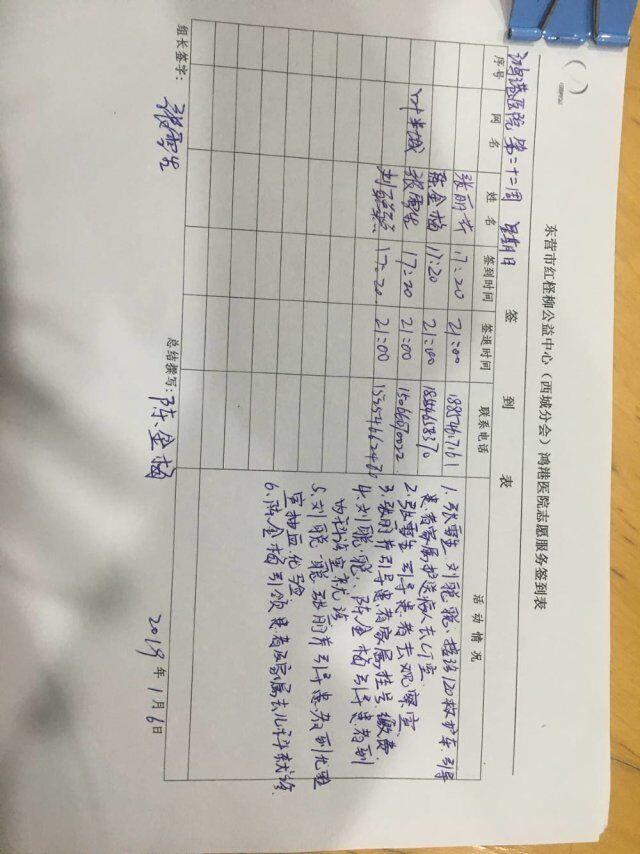 东营市红柽柳公益中心（西城分会）鸿港医院志愿服务签到表
签 到 表
鸿港医院 第二十二周 星期日
序号 网名 姓名 签到时间 签退时间 联系电话 活动情况
张丽芹 17:20 21:00
陈金梅 17:20 21:00
张雪生 17:20 21:00
刘聪聪 17:20 21:00
1.张雪生 刘聪聪、接诊120救护车引导
患者家属护送病人去CT室
2.张雪生引导患者去观察室
3.张丽芹引导患者家属挂号、缴费
4.刘聪聪、陈金梅引导患者到
内科诊室就诊
5.刘聪聪 张丽芹引导患者到化验
室抽血化验
6.陈金梅引领患者及家属去儿科就诊
组长签字： 张雪生 总结撰写：陈金梅 2019年1月6日